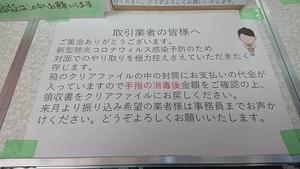 お願いします。
取引業者の皆様へ
ご集金ありがとうございます。
新型肺炎コロナウィルス感染予防のため
対面でのやり取りを極力控えさせていただきたく
存じます。
箱のクリアファイルの中の封筒にお支払いの代金が
入っていますので手指の消毒後金額をご確認の上、
領収書をクリアファイルにお戻しください。
来月より振り込み希望の業者様は事務員までお声か
けください。どうぞよろしくお願いいたします。